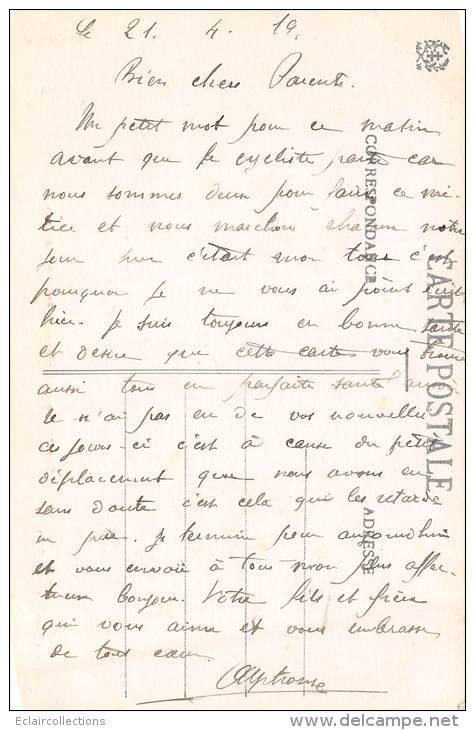 Le 21. 4. 19.
Bien chers Parents.
Un petit mot pour ce matin
avant que le cycliste parte car
nous sommes deux pour faire ce ser-
vice et nous marchons chacun notre
jour hier c'était mon tour c'est
pourquoi je ne vous ai point écrit
hier. Je suis toujours en bonne santé
et desire que cette carte vous trouve
aussi tous en parfaite santé aussi
Je n'ai pas eu de vos nouvelles
ces jours-ci c'est à cause du petit
déplacement que nous avons eu
sans doute c'est cela qui les retarde
un peu. Je termine pour aujourd'hui
et vous envoie à tous mon plus affec-
tueux bonjour. Votre fils et frère
qui vous aime et vous embrasse
de tout coeur.
Alphonse
CORRESPONDANCE
CARTE POSTALE
ADRESSE
Eclaircollections
www.delcampe.net